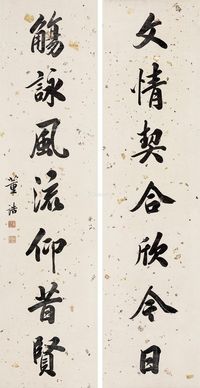 文情契合欣今日
觴詠風流仰昔賢
董誥